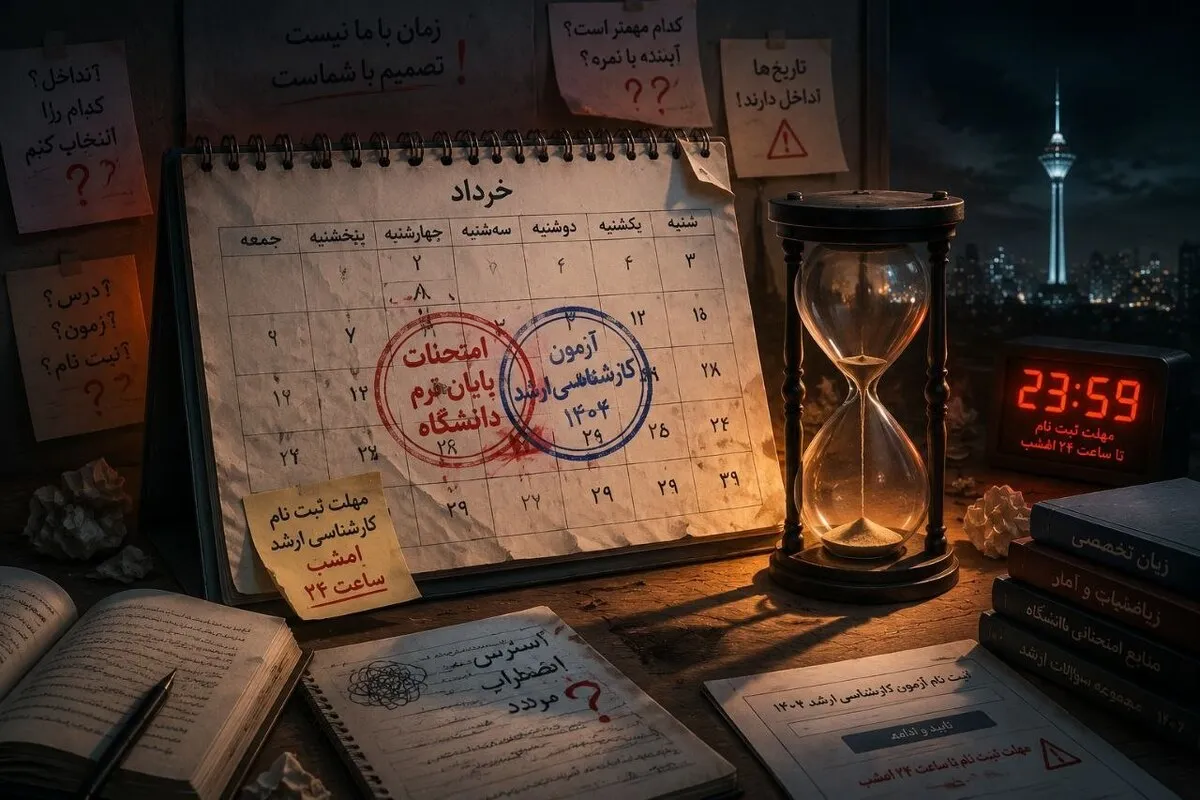 زمان با ما نیست
تصمیم با شماست!
کدام مهمتر است؟
آینده با نمره؟
؟؟
تاریخ‌ها
تداخل دارند!
تداخل؟
کدام را
انتخاب کنم
؟؟
درس؟
آزمون؟
ثبت نام؟
؟؟
خرداد
شنبه یکشنبه دوشنبه سه‌شنبه چهارشنبه پنجشنبه جمعه
۳ ۴ ۶ ۲
۸
۱۵ ۱۲ ۷ ۹
۲۸ ۱۲ ۱۷
۲۴ ۲۵ ۲۹ ۲۸
۳۹ ۲۹ ۲۹ ۲۷ ۲۹
امتحنات
بایان ترم
دانشگاه
آزمون
کارشناسی ارشد
۱۴۰۴
مهلت ثبت نام
کارشناسی ارشد
امشب
ساعت ۲۴
23:59
مهلت ثبت نام
تا ساعت ۲۴ امشب
زبان تخصصی
ریاضیات و آمار
منابع امتحانی دانشگاه
مجموعه سوالات ارشد ۱۴۰۴
استرس
اضطراب
مردد
؟
ثبت نام آزمون کارشناسی ارشد ۱۴۰۴
تایید و ادامه
مهلت ثبت نام تا ساعت ۲۴ امشب